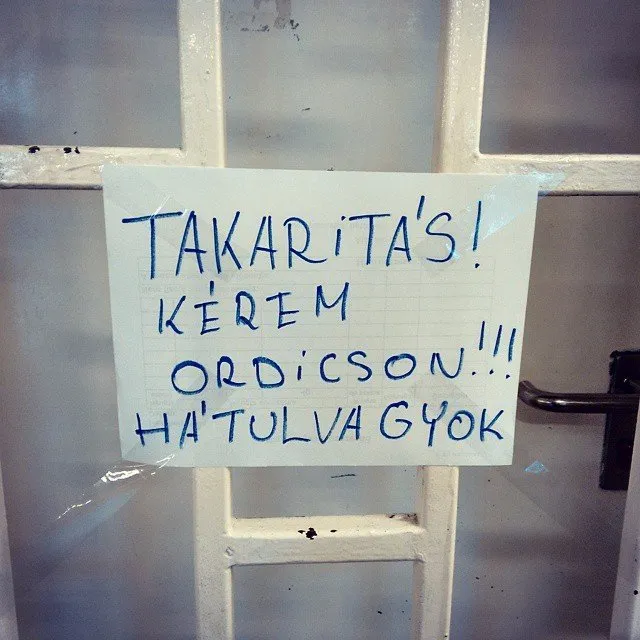 TAKARiTÁS!
KÉREM
ORDiCSON!!!
HÁTULVAGYOK